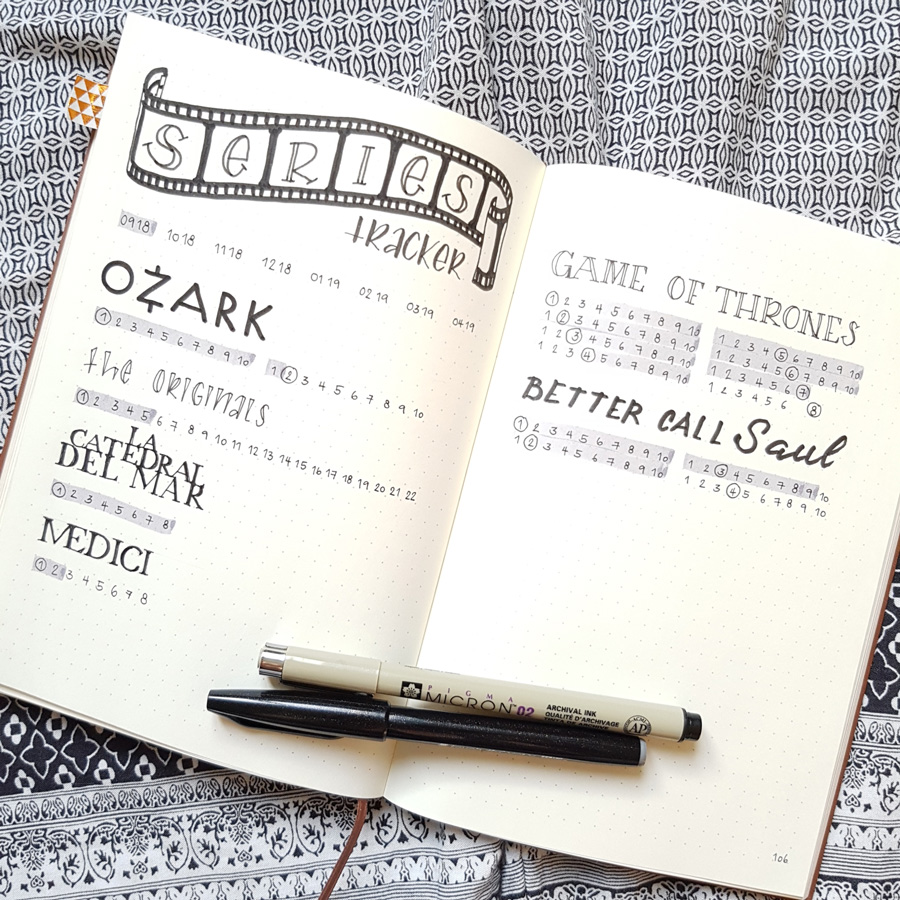 SERIES
tracker
0918 1018 1118 1218 0119 0219 0319 0419
OZARK
1 2 3 4 5 6 7 8 9 10 1 2 3 4 5 6 7 8 9 10
the ORIGINALS
1 2 3 4 5 6 7 8 9 10 11 12 13 14 15 16 17 18 19 20 21 22
LA
CATEDRAL
DEL MAR
1 2 3 4 5 6 7 8
MEDICI
1 2 3 4 5 6 7 8
GAME OF THRONES
1 2 3 4 5 6 7 8 9 10 1 2 3 4 5 6 7 8 9 10
1 2 3 4 5 6 7 8 9 10 1 2 3 4 5 6 7 8 9 10
1 2 3 4 5 6 7 8 9 10 1 2 3 4 5 6 7
1 2 3 4 5 6 7 8 9 10 1 2 3 4 5 6 8
BETTER CALL Saul
1 2 3 4 5 6 7 8 9 10 1 2 3 4 5 6 7 8 9 10
1 2 3 4 5 6 7 8 9 10 1 2 3 4 5 6 7 8 9 10
PIGMA
MICRON 02
ARCHIVAL INK
QUALITÉ D'ARCHIVAGE
AP
106